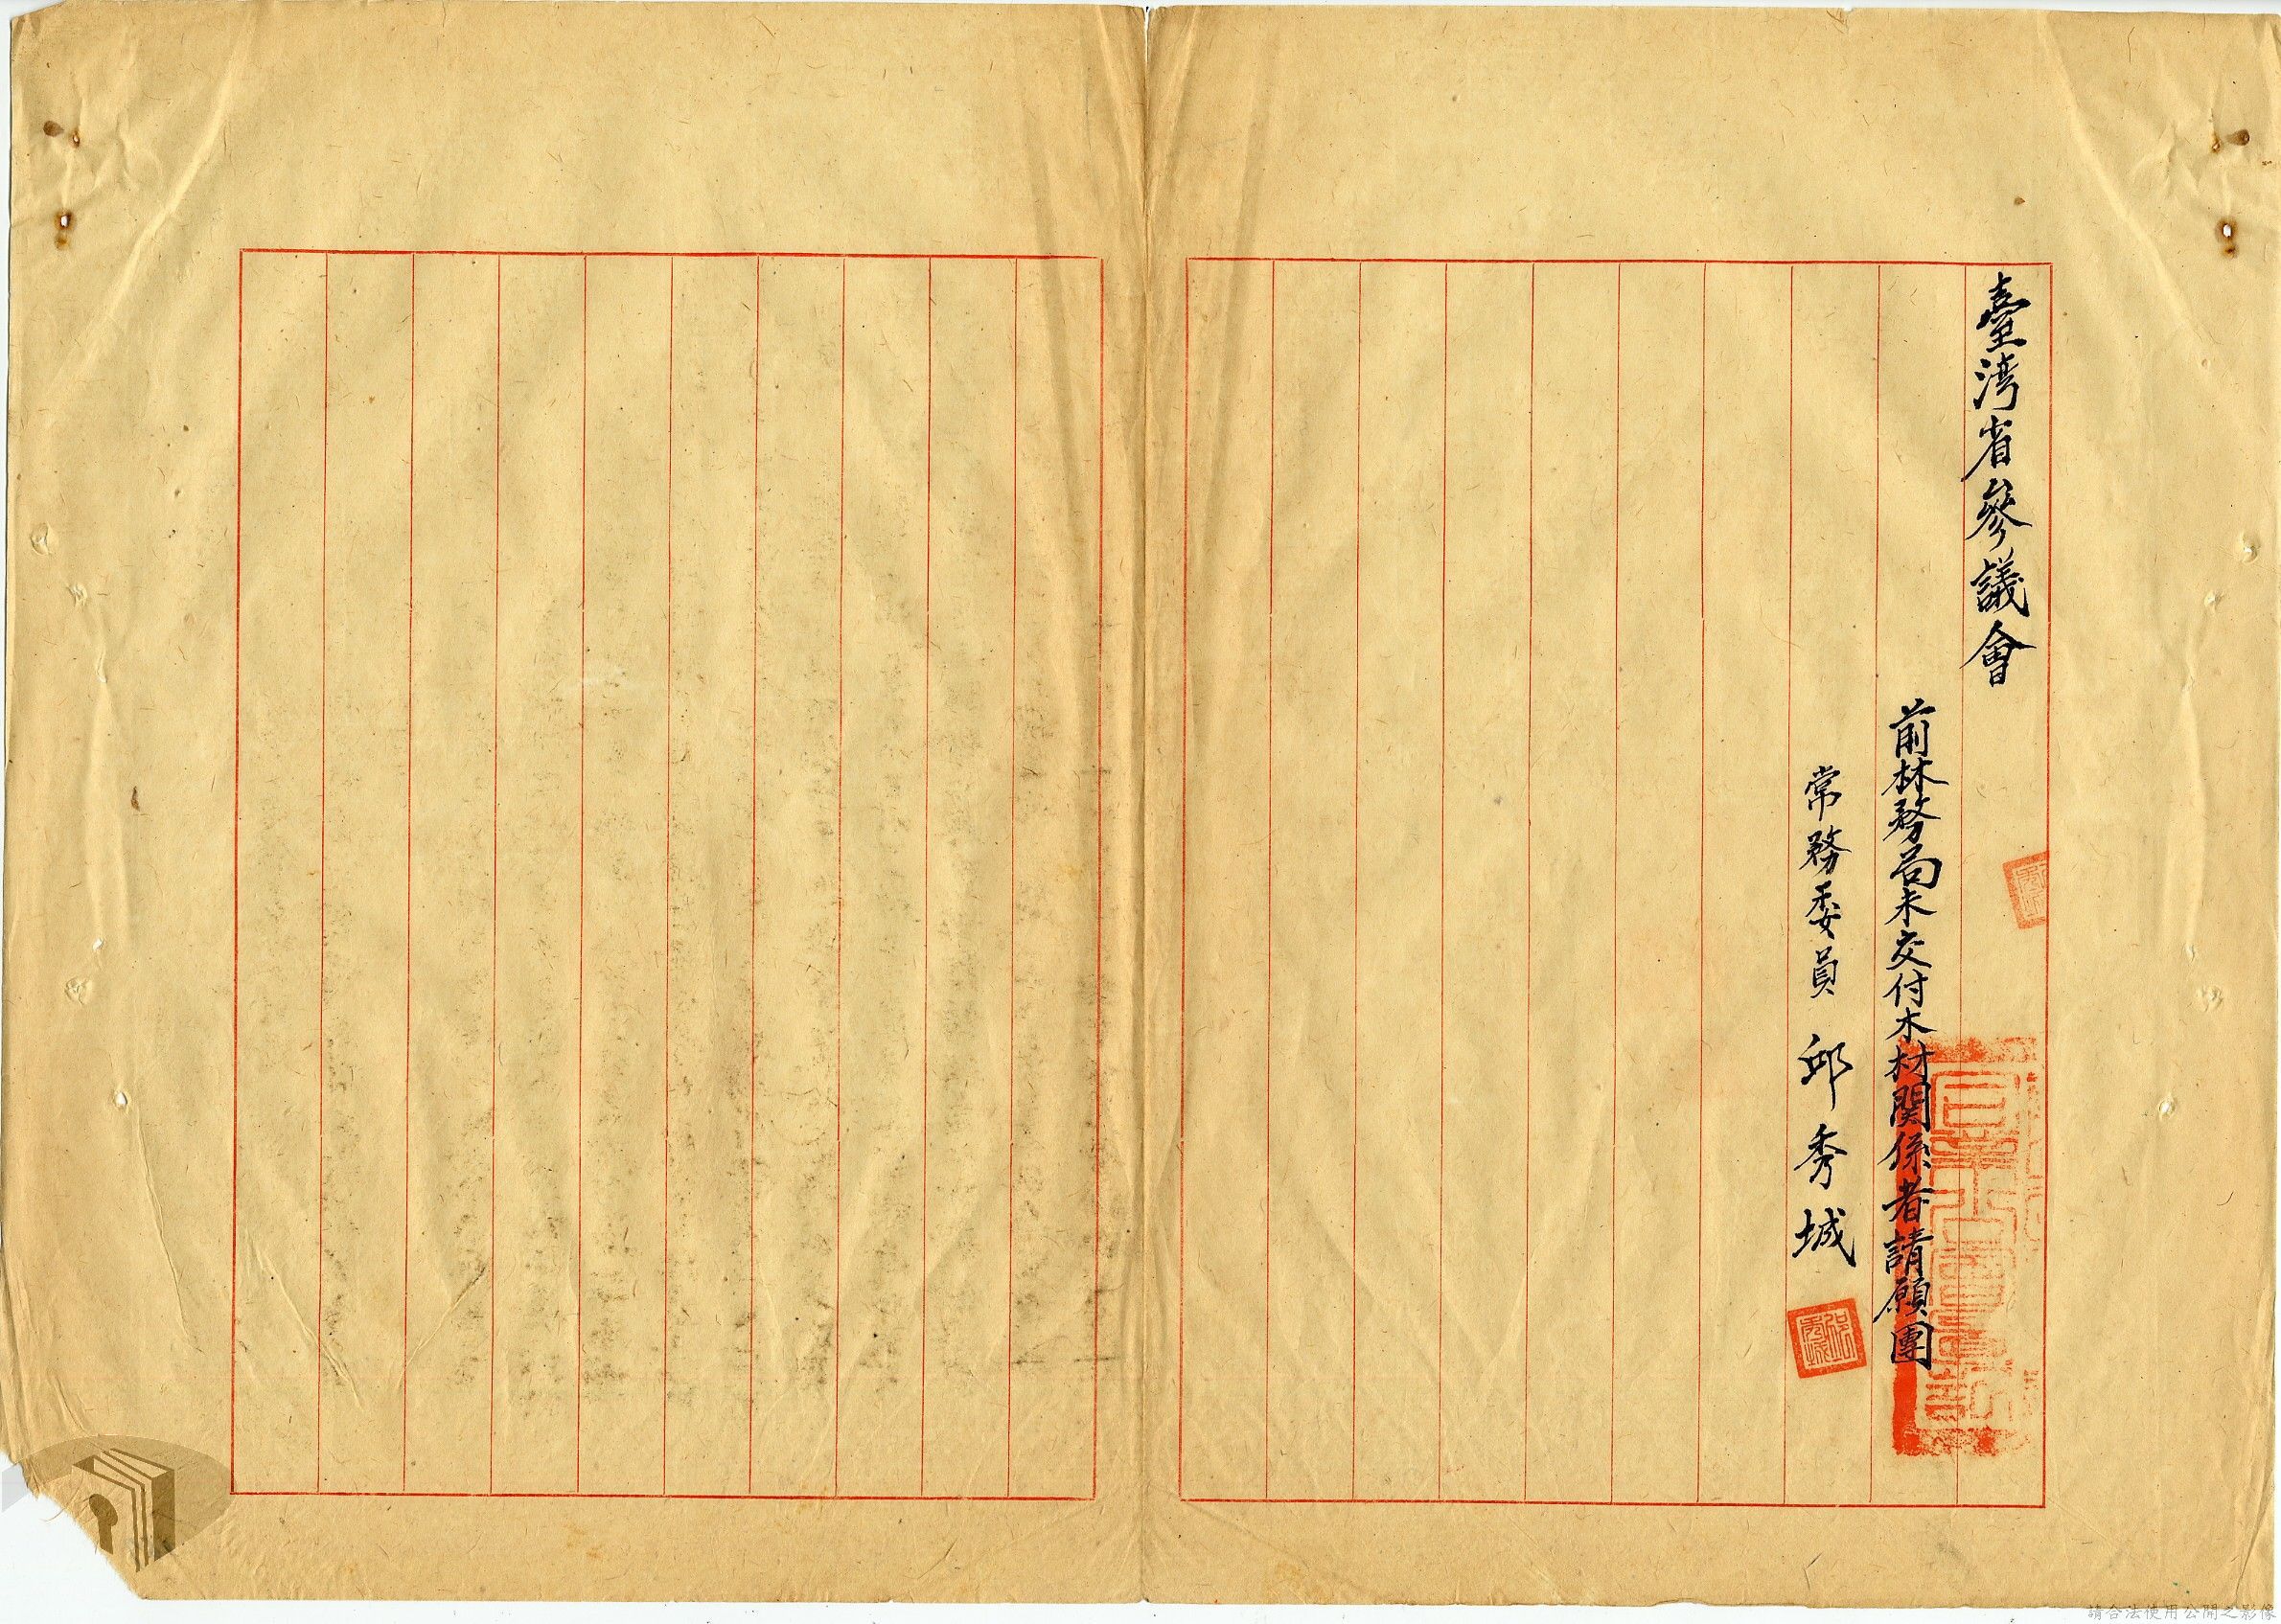 臺湾省參議會
前林務局未交付木材関係者請願團
常務委員 邱秀城
請合法使用公開之影像